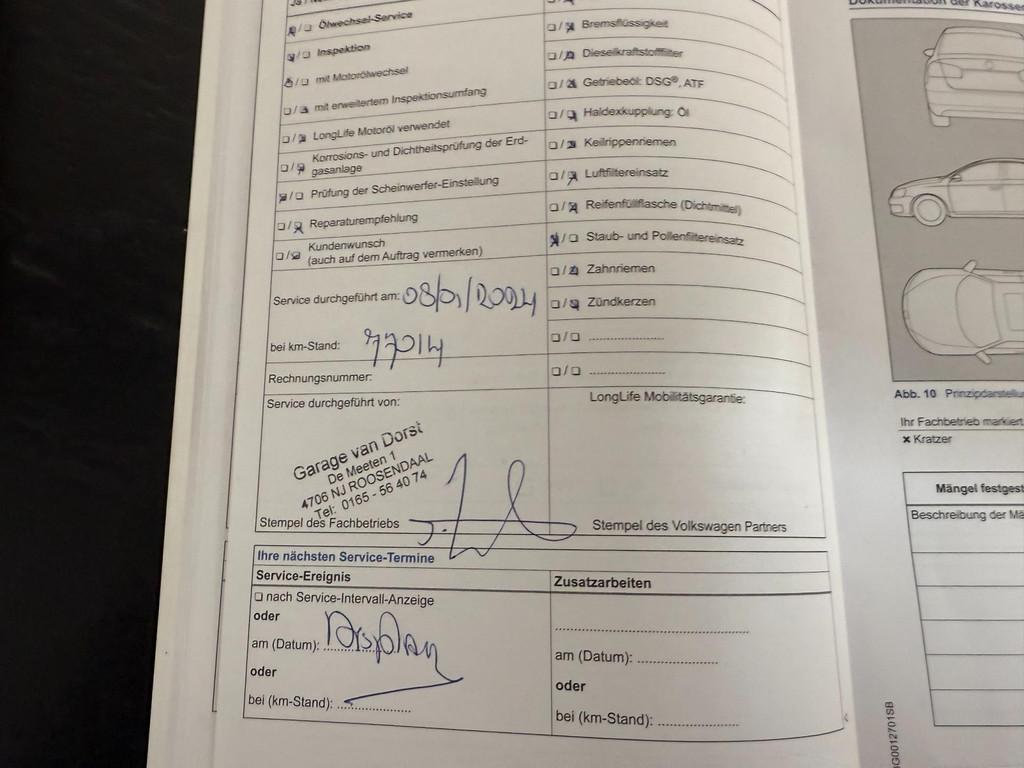 Ölwechsel-Service
Inspektion
mit Motorölwechsel
mit erweitertem Inspektionsumfang
LongLife Motoröl verwendet
Korrosions- und Dichtheitsprüfung der Erd-
gasanlage
Prüfung der Scheinwerfer-Einstellung
Reparaturempfehlung
Kundenwunsch
(auch auf dem Auftrag vermerken)
Service durchgeführt am: 08/01/2024
bei km-Stand: 77014
Rechnungsnummer:
Service durchgeführt von:
Garage van Dorst
De Meeten 1
4706 NJ ROOSENDAAL
Tel: 0165 - 56 40 74
Stempel des Fachbetriebs
Bremsflüssigkeit
Dieselkraftstofffilter
Getriebeöl: DSG®, ATF
Haldexkupplung: Öl
Keilrippenriemen
Luftfiltereinsatz
Reifenfüllflasche (Dichtmittel)
Staub- und Pollenfiltereinsatz
Zahnriemen
Zündkerzen
LongLife Mobilitätsgarantie:
Stempel des Volkswagen Partners
Ihre nächsten Service-Termine
Service-Ereignis
nach Service-Intervall-Anzeige
oder
am (Datum):
oder
bei (km-Stand):
Zusatzarbeiten
am (Datum):
oder
bei (km-Stand):
Dokumentation der
Abb. 10
Ihr Fachbetrieb markiert
Kratzer
Mängel
Beschreibung der